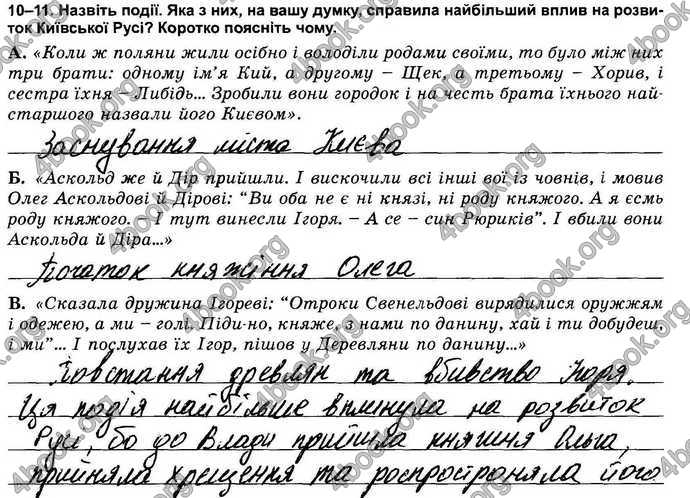 10–11. Назвіть події. Яка з них, на вашу думку, справила найбільший вплив на розви-
ток Київської Русі? Коротко поясніть чому.
А. «Коли ж поляни жили осібно і володіли родами своїми, то було між них
три брати: одному ім’я Кий, а другому – Щек, а третьому – Хорив, і
сестра їхня – Либідь... Зробили вони городок і на честь брата їхнього най-
старшого назвали його Києвом».
Заснування міста Києва
Б. «Аскольд же й Дір прийшли. І вискочили всі інші вої із човнів, і мовив
Олег Аскольдові й Дірові: “Ви оба не є ні князі, ні роду княжого. А я єсмь
роду княжого. – І тут винесли Ігоря. – А се – син Рюриків”. І вбили вони
Аскольда й Діра...»
Початок княжіння Олега
В. «Сказала дружина Ігореві: “Отроки Свенельдові вирядилися оружжям
і одежею, а ми – голі. Піди-но, княже, з нами по данину, хай і ти добудеш,
і ми”... І послухав їх Ігор, пішов у Деревляни по данину...»
Повстання древлян та вбивство Ігоря.
Ця подія найбільше вплинула на розвиток
Русі, бо до влади прийшла княгиня Ольга,
прийняла хрещення та роспространяла його
4book.org